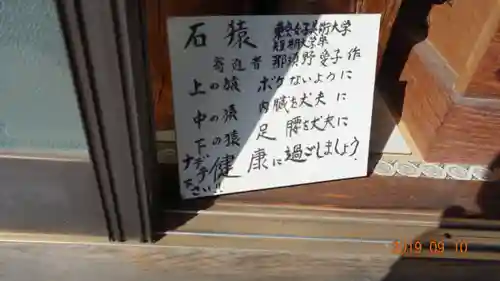 石猿 東京女子美術大学
短期大学卒
寄進者 那須野愛子作
上の猿 ボケないように
中の猿 内臓を丈夫に
下の猿 足腰を丈夫に
ナデテ下さい!!
健康に過ごしましょう
2019 09 10